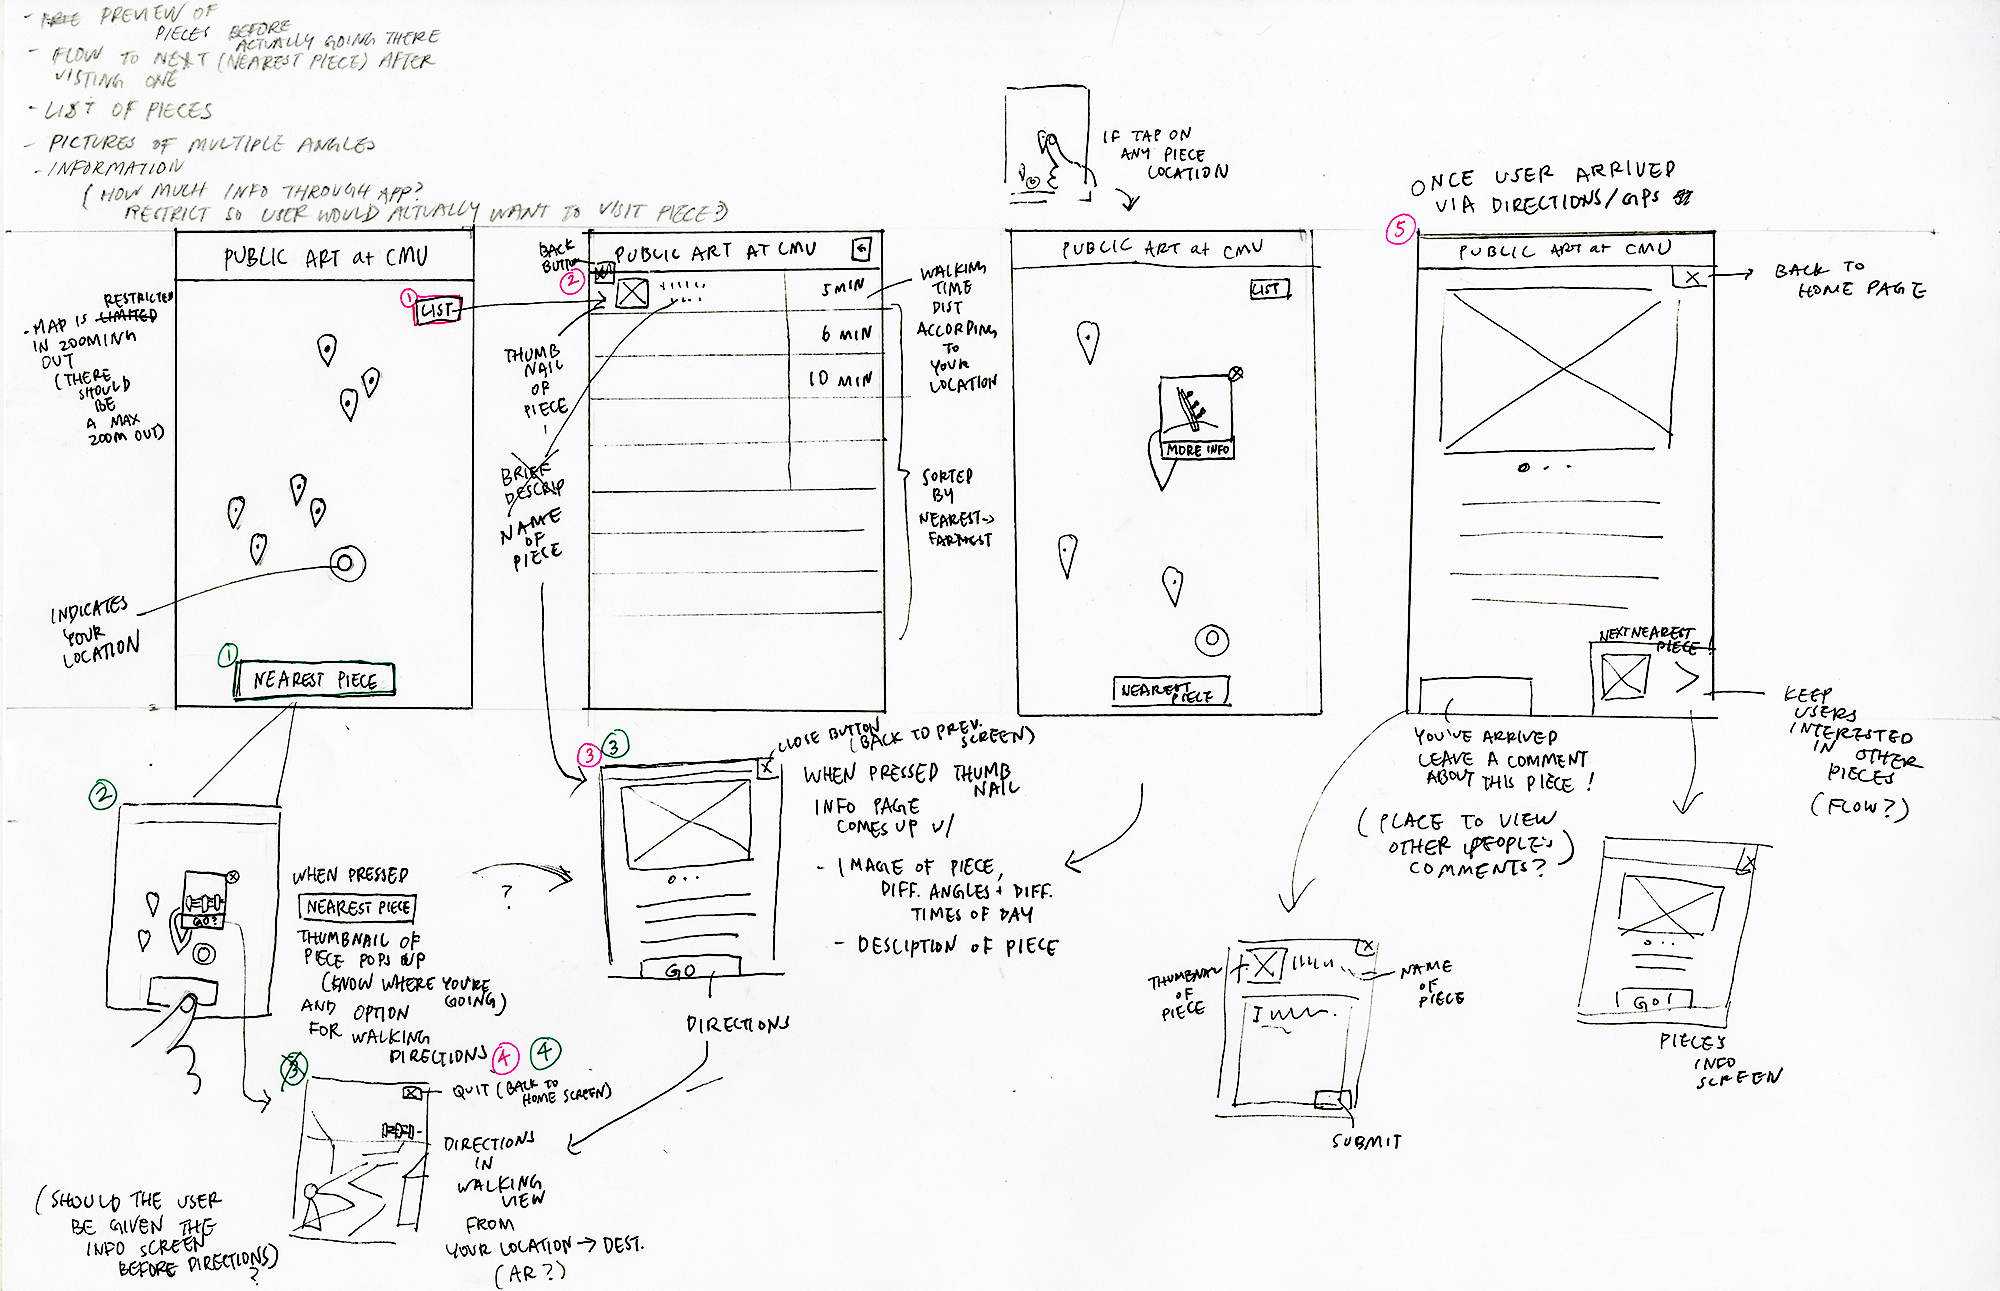 - PREVIEW OF
PIECES BEFORE
ACTUALLY GOING THERE
- FLOW TO NEXT (NEAREST PIECE) AFTER
VISTING ONE
- LIST OF PIECES
- PICTURES OF MULTIPLE ANGLES
- INFORMATION
(HOW MUCH INFO THROUGH APP?
RESTRICT SO USER WOULD ACTUALLY WANT TO VISIT PIECE?)
PUBLIC ART at CMU
① LIST
RESTRICTED
- MAP IS LIMITED
IN ZOOMING
OUT
(THERE
SHOULD
BE
A MAX
ZOOM OUT)
INDICATES
YOUR
LOCATION
①
NEAREST PIECE
BACK
BUTTON
②
PUBLIC ART AT CMU
5 MIN
6 MIN
10 MIN
THUMB
NAIL
OF
PIECE
BRIEF
DESCRIP
NAME
OF
PIECE
WALKING
TIME
DIST
ACCORDING
TO
YOUR
LOCATION
SORTED
BY
NEAREST→
FARTHEST
IF TAP ON
ANY PIECE
LOCATION
PUBLIC ART at CMU
LIST
MORE INFO
NEAREST
PIECE
ONCE USER ARRIVED
VIA DIRECTIONS/GPS
⑤
PUBLIC ART at CMU
X → BACK TO
HOME PAGE
NEXT NEAREST
PIECE!
KEEP
USERS
INTERESTED
IN OTHER
PIECES
(FLOW?)
YOU'VE ARRIVED
LEAVE A COMMENT
ABOUT THIS PIECE!
(PLACE TO VIEW
OTHER PEOPLE'S
COMMENTS?)
②
GO?
WHEN PRESSED
NEAREST PIECE
THUMBNAIL OF
PIECE POPS UP
(KNOW WHERE YOU'RE
GOING)
AND OPTION
FOR WALKING
DIRECTIONS
?
③ ③
X
CLOSE BUTTON
(BACK TO PREV.
SCREEN)
WHEN PRESSED THUMB
NAIL
INFO PAGE
COMES UP W/
- IMAGE OF PIECE,
DIFF. ANGLES + DIFF.
TIMES OF DAY
- DESCIPTION OF PIECE
GO
DIRECTIONS
③
④ ④
X
QUIT (BACK TO
HOME SCREEN)
DIRECTIONS
IN
WALKING
VIEW
FROM
YOUR LOCATION → DEST.
(AR?)
(SHOULD THE USER
BE GIVEN THE
INFO SCREEN
BEFORE DIRECTIONS)
?
THUMBNAIL
OF
PIECE
X
NAME
OF
PIECE
SUBMIT
X
GO!
PIECE'S
INFO
SCREEN